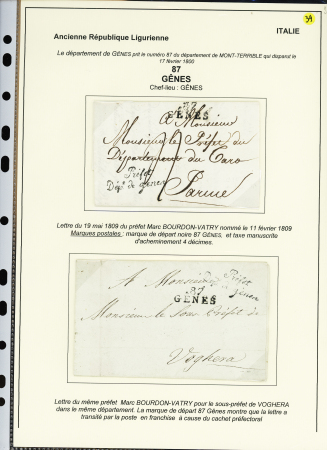 ITALIE
39
Ancienne République Ligurienne
Le département de GÊNES prit le numéro 87 du département de MONT-TERRIBLE qui disparut le
17 février 1800
87
GÊNES
Chef-lieu : GÊNES
87
GÊNES
A Monsieur
Monsieur le Préfet du
Département du Taro
Préfet
Dépt de Genes
Parme
Lettre du 19 mai 1809 du préfet Marc BOURDON-VATRY nommé le 11 février 1809
Marques postales : marque de départ noire 87 GÊNES, et taxe manuscrite
d'acheminement 4 décimes.
A Monsieur
Préfet
de genes
87
GÊNES
Monsieur le Sous Préfet de
Voghera
Lettre du même préfet Marc BOURDON-VATRY pour le sous-préfet de VOGHERA
dans le même département. La marque de départ 87 Gênes montre que la lettre a
transité par la poste en franchise à cause du cachet préfectoral